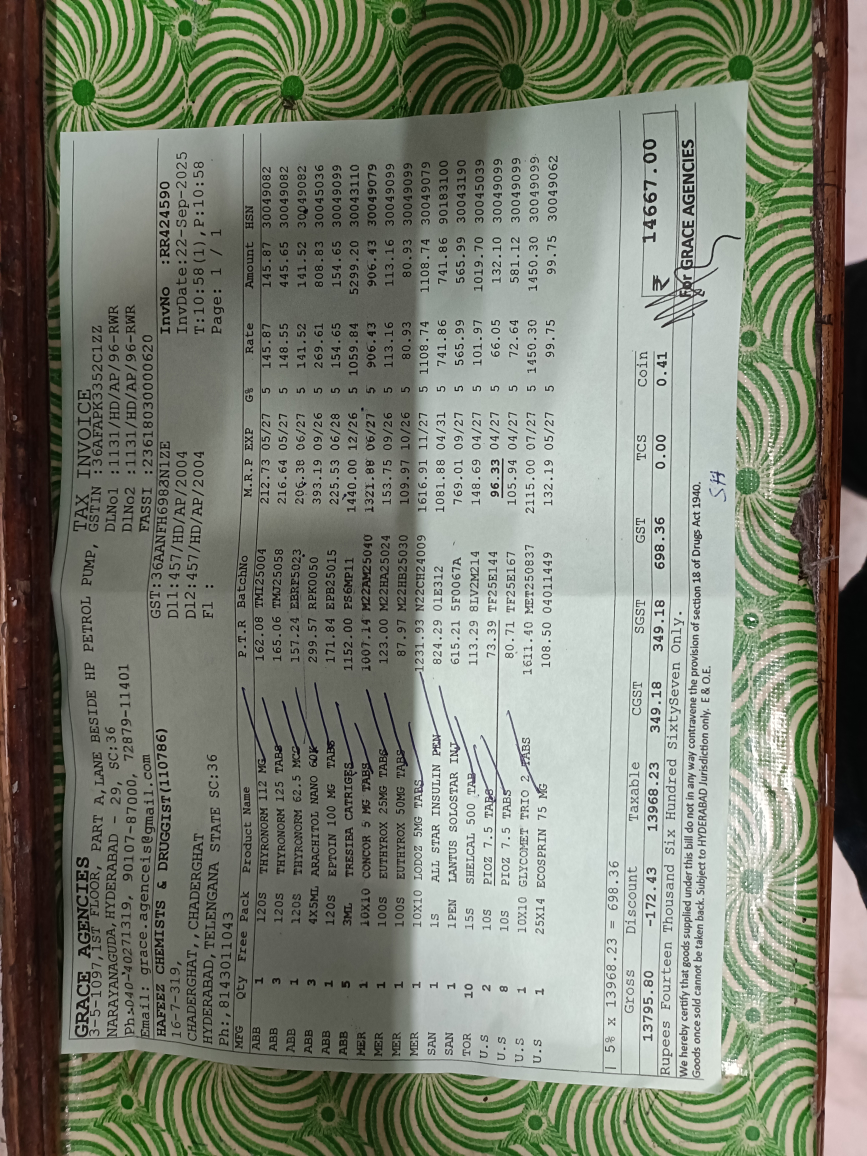 GRACE AGENCIES
3-5-1097,1ST FLOOR, PART A,LANE BESIDE HP PETROL PUMP,
NARAYANAGUDA,HYDERABAD - 29, SC:36
Ph:040-40271319, 90107-87000, 72879-11401
Email: grace.agenceis@gmail.com
TAX INVOICE
GSTIN :36AFAPK3352C1ZZ
DLNo1 :1131/HD/AP/96-RWR
DlNo2 :1131/HD/AP/96-RWR
FASSI :23618030000620
HAFEEZ CHEMISTS & DRUGGIST(110786)
16-7-319,
CHADERGHAT,,CHADERGHAT
HYDERABAD,TELENGANA STATE SC:36
Ph:,8143011043
GST:36AANFH6982N1ZE
D11:457/HD/AP/2004
D12:457/HD/AP/2004
Fl :
InvNo :RR424590
InvDate:22-Sep-2025
T:10:58(1),P:10:58
Page: 1 / 1
MFG Qty Free Pack Product Name P.T.R BatchNo M.R.P EXP G% Rate Amount HSN
ABB 1 120S THYRONORM 112 MG 162.08 TMI25004 212.73 05/27 5 145.87 145.87 30049082
ABB 3 120S THYRONORM 125 TABS 165.06 TMJ25058 216.64 05/27 5 148.55 445.65 30049082
ABB 1 120S THYRONORM 62.5 MCG 157.24 EBRP5023 206.38 06/27 5 141.52 141.52 30049082
ABB 3 4X5ML ARACHITOL NANO 60K 299.57 RPK0050 393.19 09/26 5 269.61 808.83 30045036
ABB 1 120S EPTOIN 100 MG TABS 171.84 EPB25015 225.53 06/28 5 154.65 154.65 30049099
ABB 5 3ML TRESIBA CATRIGES 1152.00 PS6MP11 1440.00 12/26 5 1059.84 5299.20 30043110
MER 1 10X10 CONCOR 5 MG TABS 1007.14 M22AM25040 1321.88 06/27 5 906.43 906.43 30049079
MER 1 100S EUTHYROX 25MG TABS 123.00 M22HA25024 153.75 09/26 5 113.16 113.16 30049099
MER 1 100S EUTHYROX 50MG TABS 87.97 M22HB25030 109.97 10/26 5 80.93 80.93 30049099
MER 1 10X10 LODOZ 5MG TABS 1231.93 N22CH24009 1616.91 11/27 5 1108.74 1108.74 30049079
SAN 1 1S ALL STAR INSULIN PEN 824.29 01E312 1081.88 04/31 5 741.86 741.86 90183100
SAN 1 1PEN LANTUS SOLOSTAR INJ 615.21 5F0067A 769.01 09/27 5 565.99 565.99 30043190
TOR 10 15S SHELCAL 500 TAB 113.29 8LV2M214 148.69 04/27 5 101.97 1019.70 30045039
U.S 2 10S PIOZ 7.5 TABS 73.39 TF25E144 96.33 04/27 5 66.05 132.10 30049099
U.S 8 10S PIOZ 7.5 TABS 80.71 TF25E167 105.94 04/27 5 72.64 581.12 30049099
U.S 1 10X10 GLYCOMET TRIO 2 TABS 1611.40 MET250837 2115.00 07/27 5 1450.30 1450.30 30049099
U.S 1 25X14 ECOSPRIN 75 MG 108.50 04011449 132.19 05/27 5 99.75 99.75 30049062
| 5% x 13968.23 = 698.36
Gross Discount Taxable CGST SGST GST TCS Coin
13795.80 -172.43 13968.23 349.18 349.18 698.36 0.00 0.41
₹ 14667.00
Rupees Fourteen Thousand Six Hundred SixtySeven Only.
We hereby certify that goods supplied under this bill do not in any way contravene the provision of section 18 of Drugs Act 1940.
Goods once sold cannot be taken back. Subject to HYDERABAD Jurisdiction only. E & O.E.
For GRACE AGENCIES